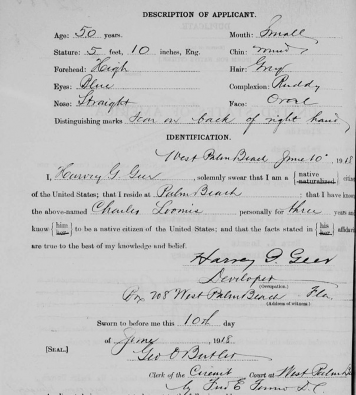 DESCRIPTION OF APPLICANT.
Age: 50 years. Mouth: Small
Stature: 5 feet, 10 inches, Eng. Chin:
Forehead: High Hair: Gray
Eyes: Blue Complexion: Ruddy
Nose: Straight Face: Oval
Distinguishing marks Scar on back of right hand
IDENTIFICATION.
West Palm Beach June 10" 1918
I, Harvey G. Geer, solemnly swear that I am a {native naturalized}
of the United States; that I reside at Palm Beach; that I have
the above-named Charles Loomis personally for three years
know {him her} to be a native citizen of the United States; and that the facts stated in {his her}
are true to the best of my knowledge and belief.
Harvey G. Geer
Developer
(Occupation.)
Box 708 West Palm Beach Fla
(Address of witness.)
Sworn to before me this 10th day
of June, 1918
[SEAL.] Geo O Butler
Clerk of the Circuit Court at West Palm
by Fred E Fenno D.C.